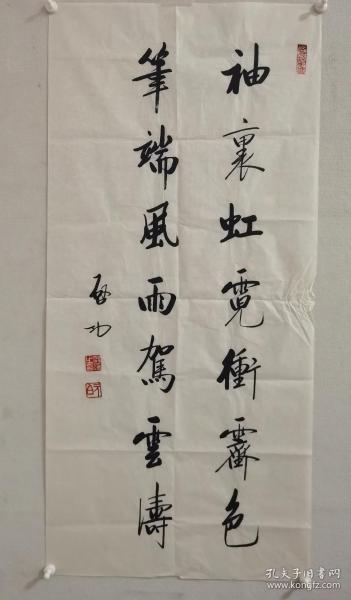 袖裏虹霓衝霽色
筆端風雨駕雲濤
啟功
孔夫子旧书网
www.kongfz.com